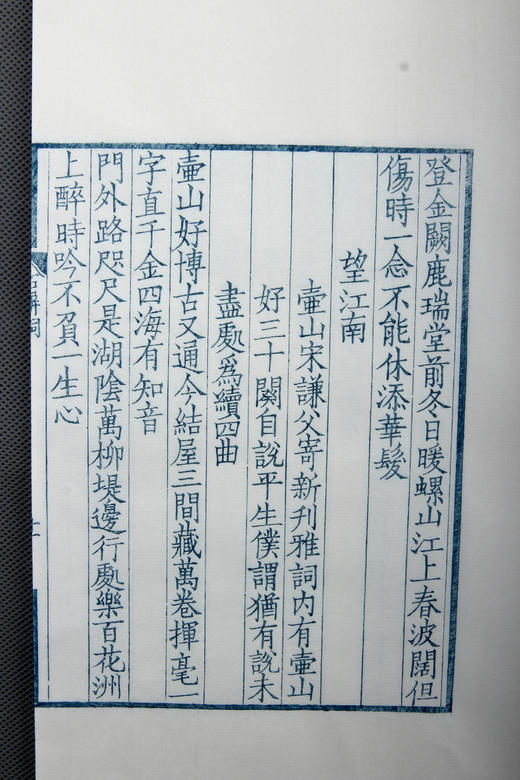 登金闕鹿瑞堂前冬日暖螺山江上春波闊但
傷時一念不能休添華髮
望江南
壷山宋謙父寄新刊雅詞内有壷山
好三十闋自說平生僕謂猶有說未
盡處爲續四曲
壷山好博古又通今結屋三間藏萬卷揮毫一
字直千金四海有知音
門外路咫尺是湖陰萬柳堤邊行處樂百花洲
上醉時吟不負一生心